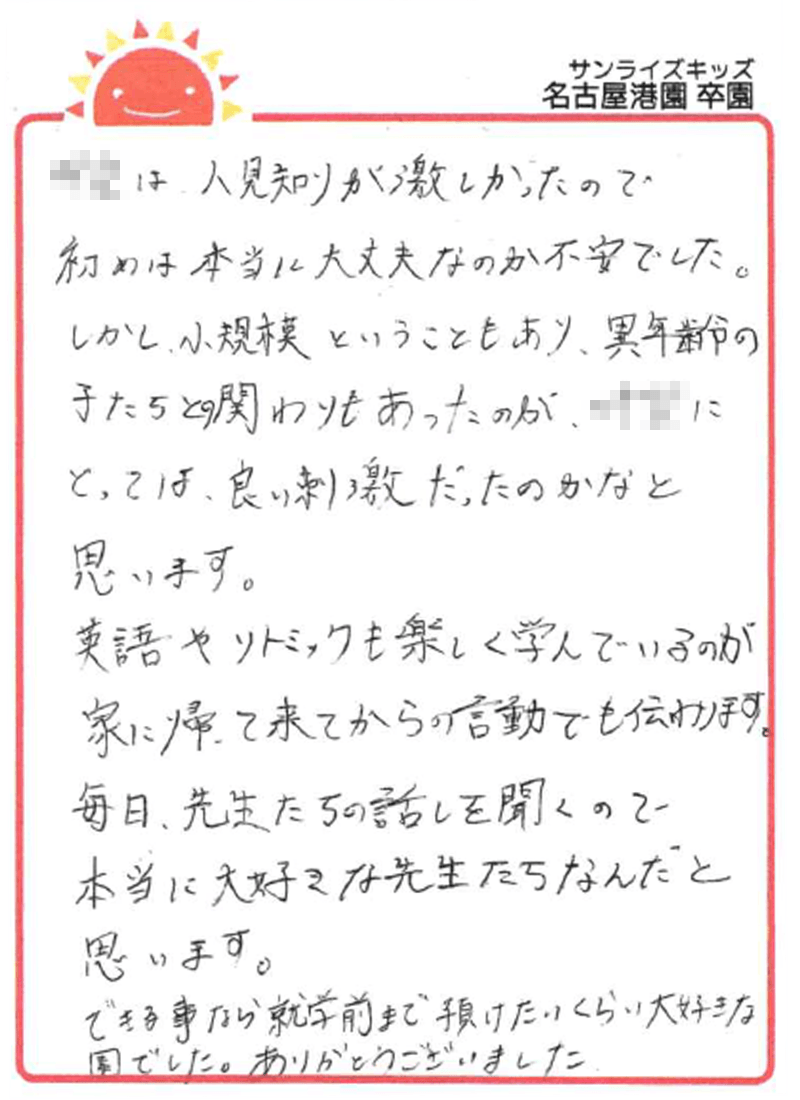 サンライズキッズ
名古屋港園 卒園
は、人見知りが激しかったので
初めは本当に大丈夫なのか不安でした。
しかし、小規模ということもあり、異年齢の
子たちとの関わりもあったのが、に
とっては、良い刺激だったのかなと
思います。
英語やリトミックも楽しく学んでいるのが
家に帰って来てからの言動でも伝わります。
毎日、先生たちの話しを聞くので
本当に大好きな先生たちなんだと
思います。
できる事なら就学前まで預けたいくらい大好きな
園でした。ありがとうございました